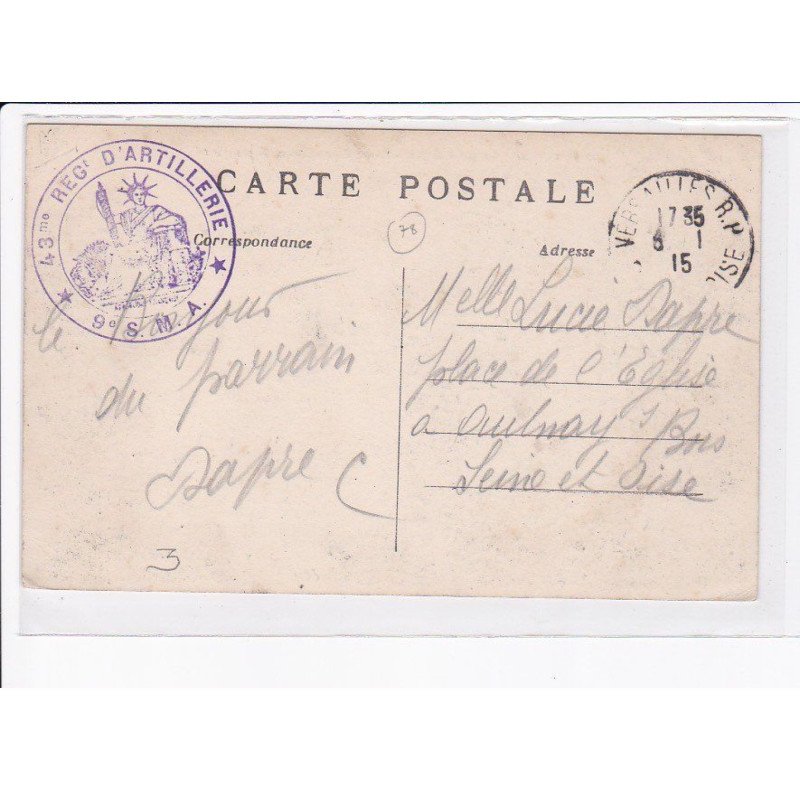 43me REGt D'ARTILLERIE
9e S. M. A.
CARTE POSTALE
Correspondance
78
Adresse
VERSAILLES R.P.
17 35
6 1
15
OISE
le
du parrain
Dapre
3
Melle Lucie Dapre
place de l'Eglise
a Aulnay s Bois
Seine et Oise